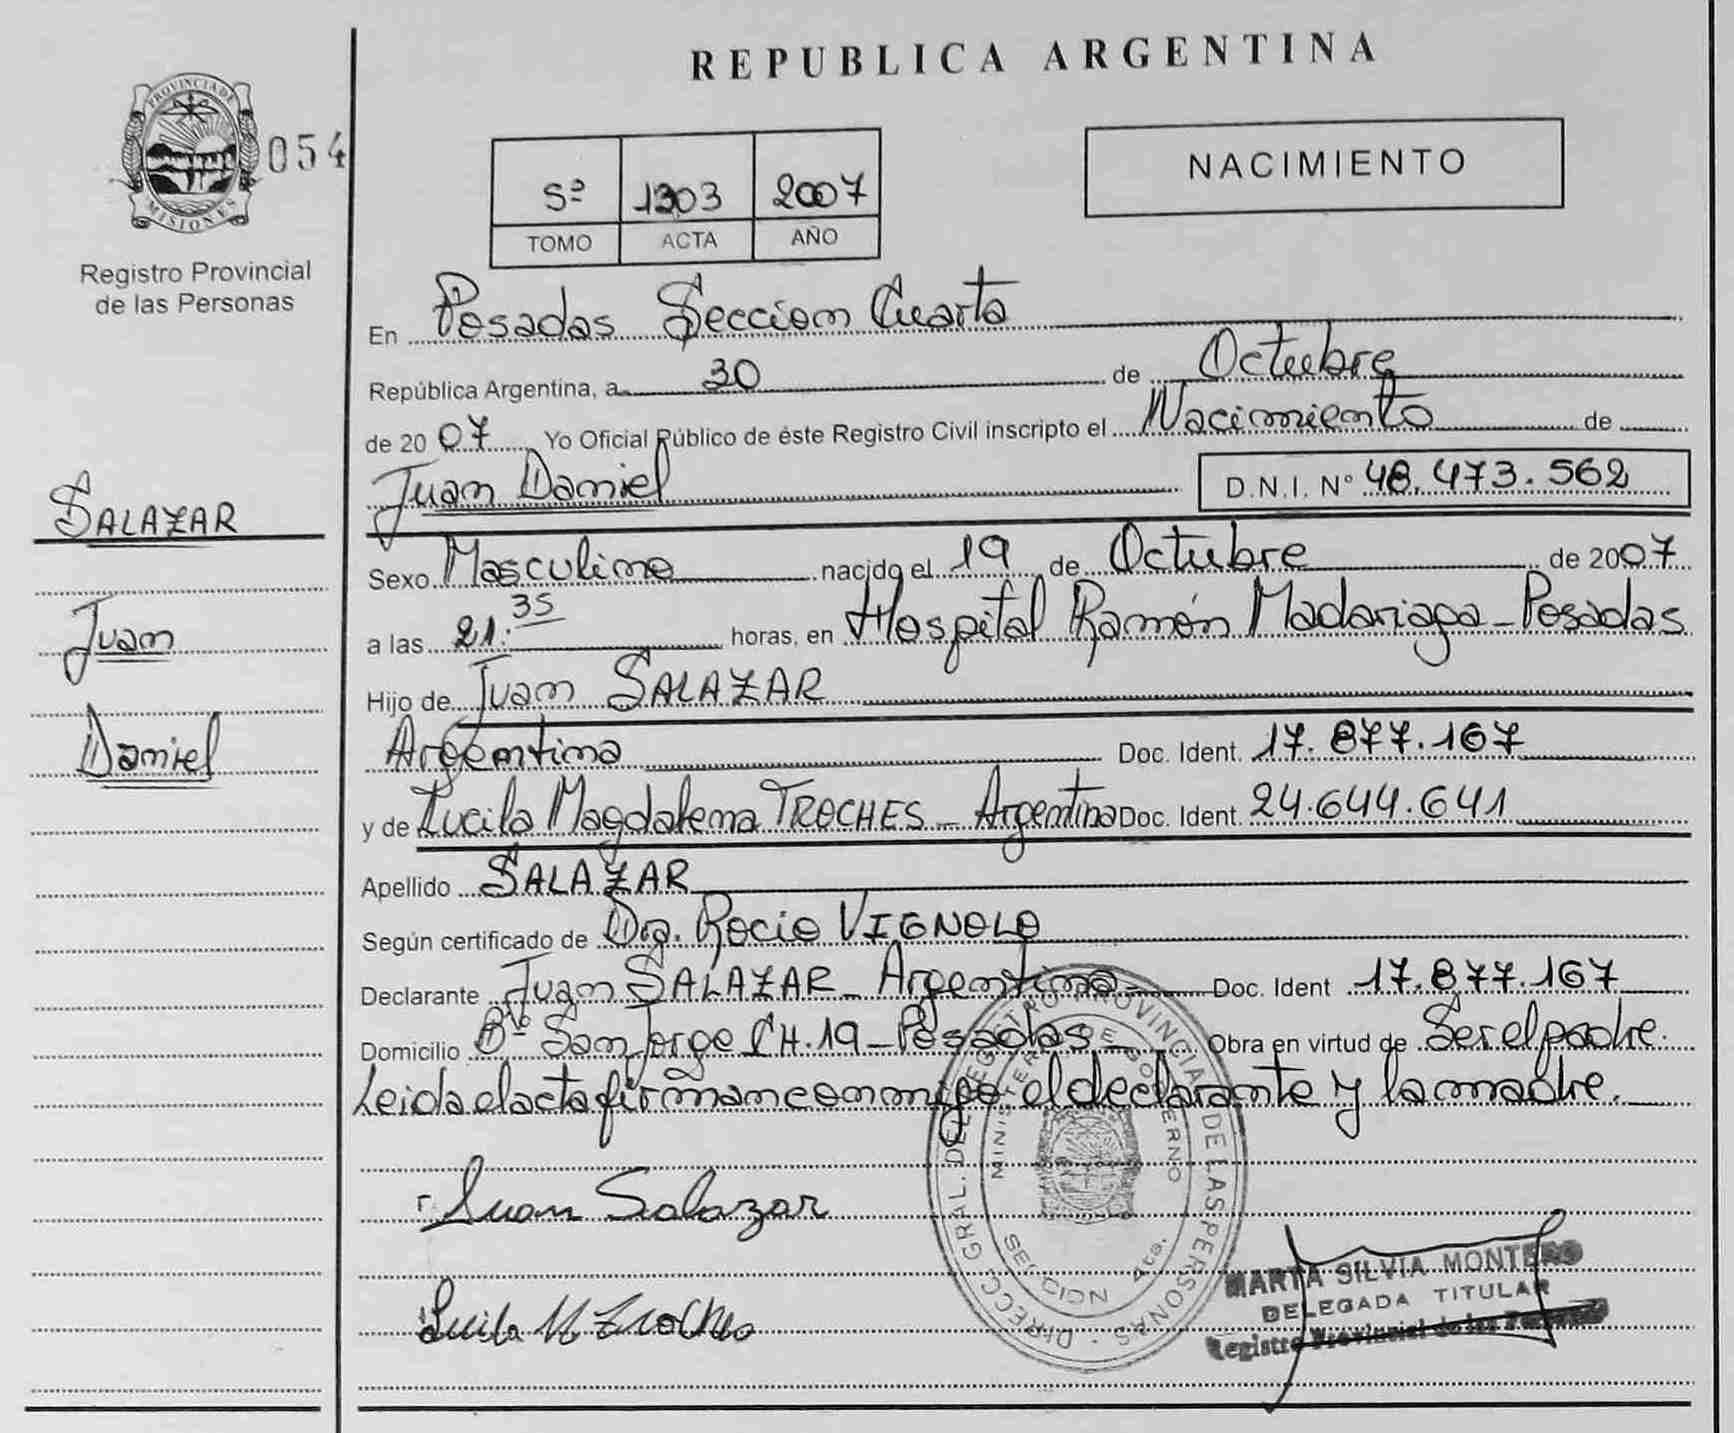 REPUBLICA ARGENTINA
PROVINCIA DE
MISIONES
054
Registro Provincial
de las Personas
5º 1303 2007
TOMO ACTA AÑO
NACIMIENTO
En Posadas Seccion Cuarta
República Argentina, a 30 de Octubre
de 2007 Yo Oficial Público de éste Registro Civil inscripto el Nacimiento de
Juan Daniel D.N.I. Nº 48.473.562
SALAZAR
Juan
Daniel
Sexo Masculino nacido el 19 de Octubre de 2007
a las 21:35 horas, en Hospital Ramón Madariaga - Posadas
Hijo de Juan SALAZAR
Argentino Doc. Ident. 17.877.167
y de Lucila Magdalena TROCHES - Argentina Doc. Ident. 24.644.641
Apellido SALAZAR
Según certificado de Dra. Rocio VIGNOLO
Declarante Juan SALAZAR - Argentino Doc. Ident 17.877.167
Domicilio Bº San Jorge CH. 19 - Posadas Obra en virtud de Ser el padre.
Leida el acta firman conmigo el declarante y la madre.
Juan Salazar
Lucila M Troches
DIRECC. GRAL. DEL REGISTRO PROVINCIAL DE LAS PERSONAS
MINISTERIO DE GOBIERNO
4ta.
MARTA SILVIA MONTERO
DELEGADA TITULAR
Registro Provincial de las Personas